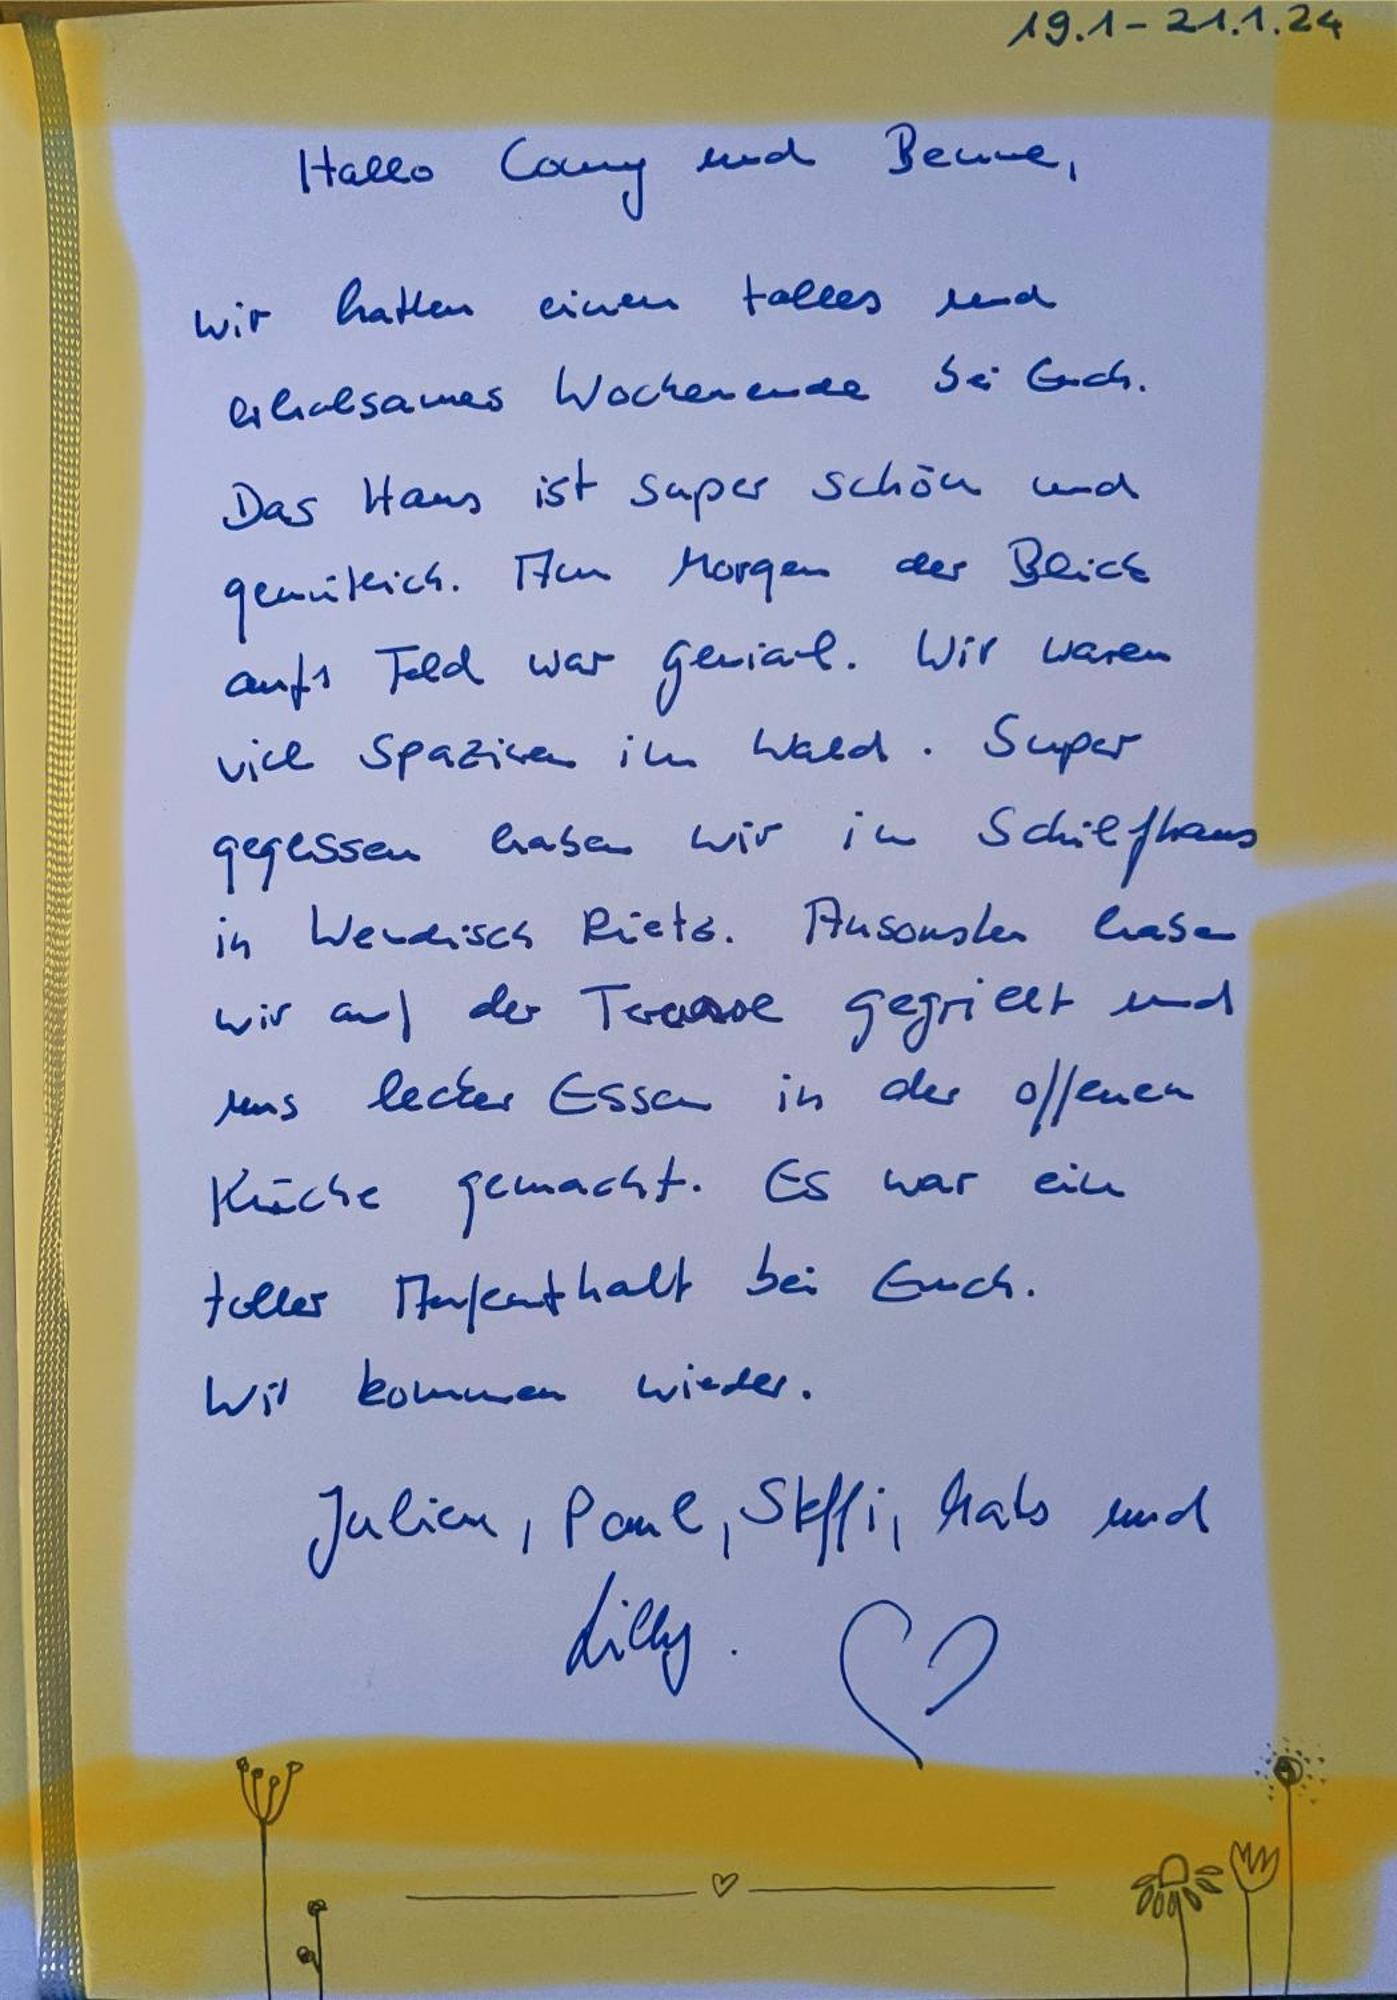 19.1 - 21.1.24
Hallo Conny und Benne,
wir hatten einen tolles und
erholsames Wochenende bei Euch.
Das Haus ist super schön und
gemütlich. Am Morgen der Blick
aufs Feld war genial. Wir waren
viel Spaziren im Wald. Super
gegessen haben wir im Schilfhaus
in Wendisch Rietz. Ansonsten haben
wir auf der Terasse gegrillt und
uns lecker Essen in der offenen
Küche gemacht. Es war ein
toller Aufenthalt bei Euch.
Wir kommen wieder.
Julien, Paul, Steffi, Mats und
Lilly.